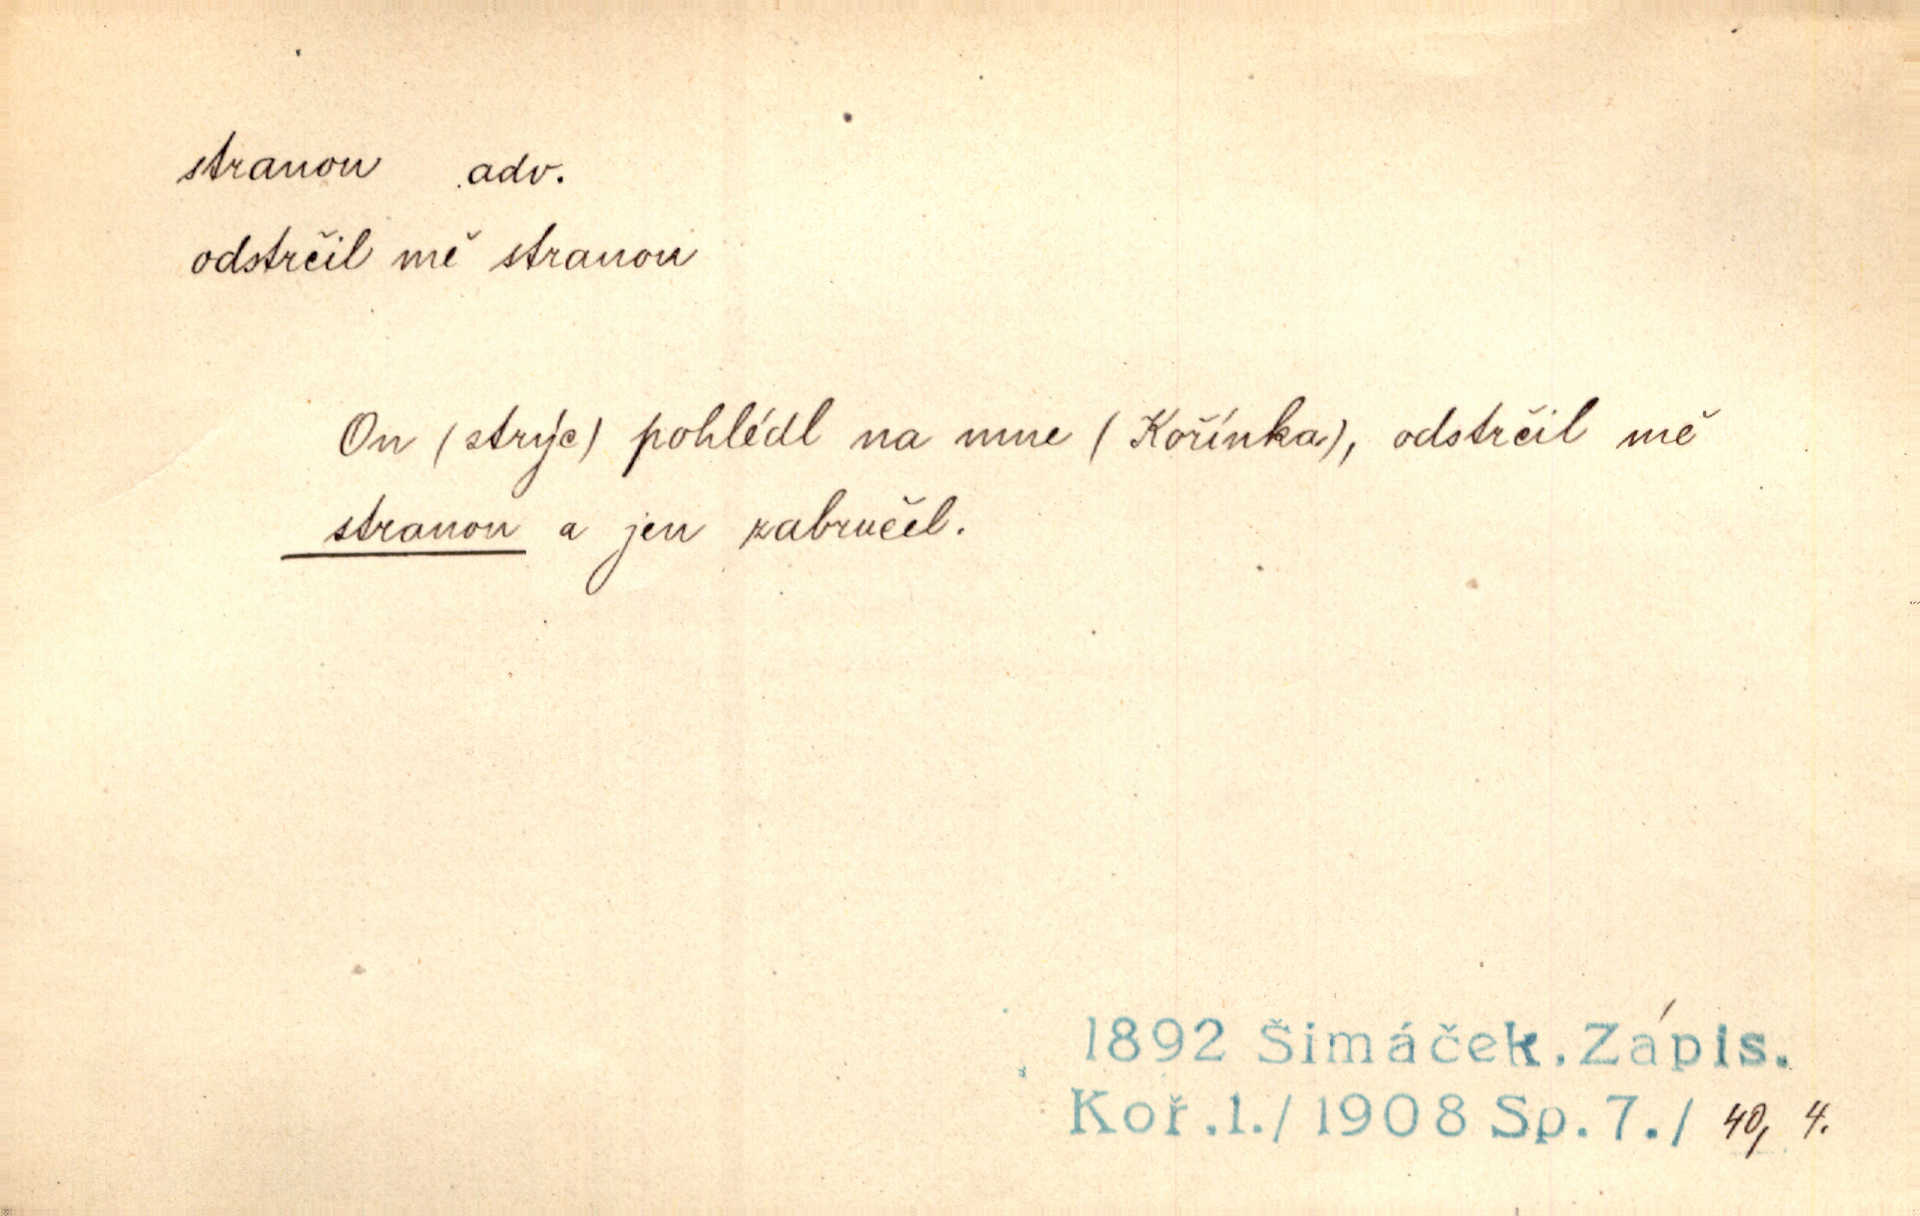 stranou adv.
odstrčil mě stranou
On (strýc) pohlédl na mne (Kořínka), odstrčil mě
stranou a jen zabručel.
1892 Šimáček. Zápis.
Koř. 1./1908 Sp. 7./ 40, 4.